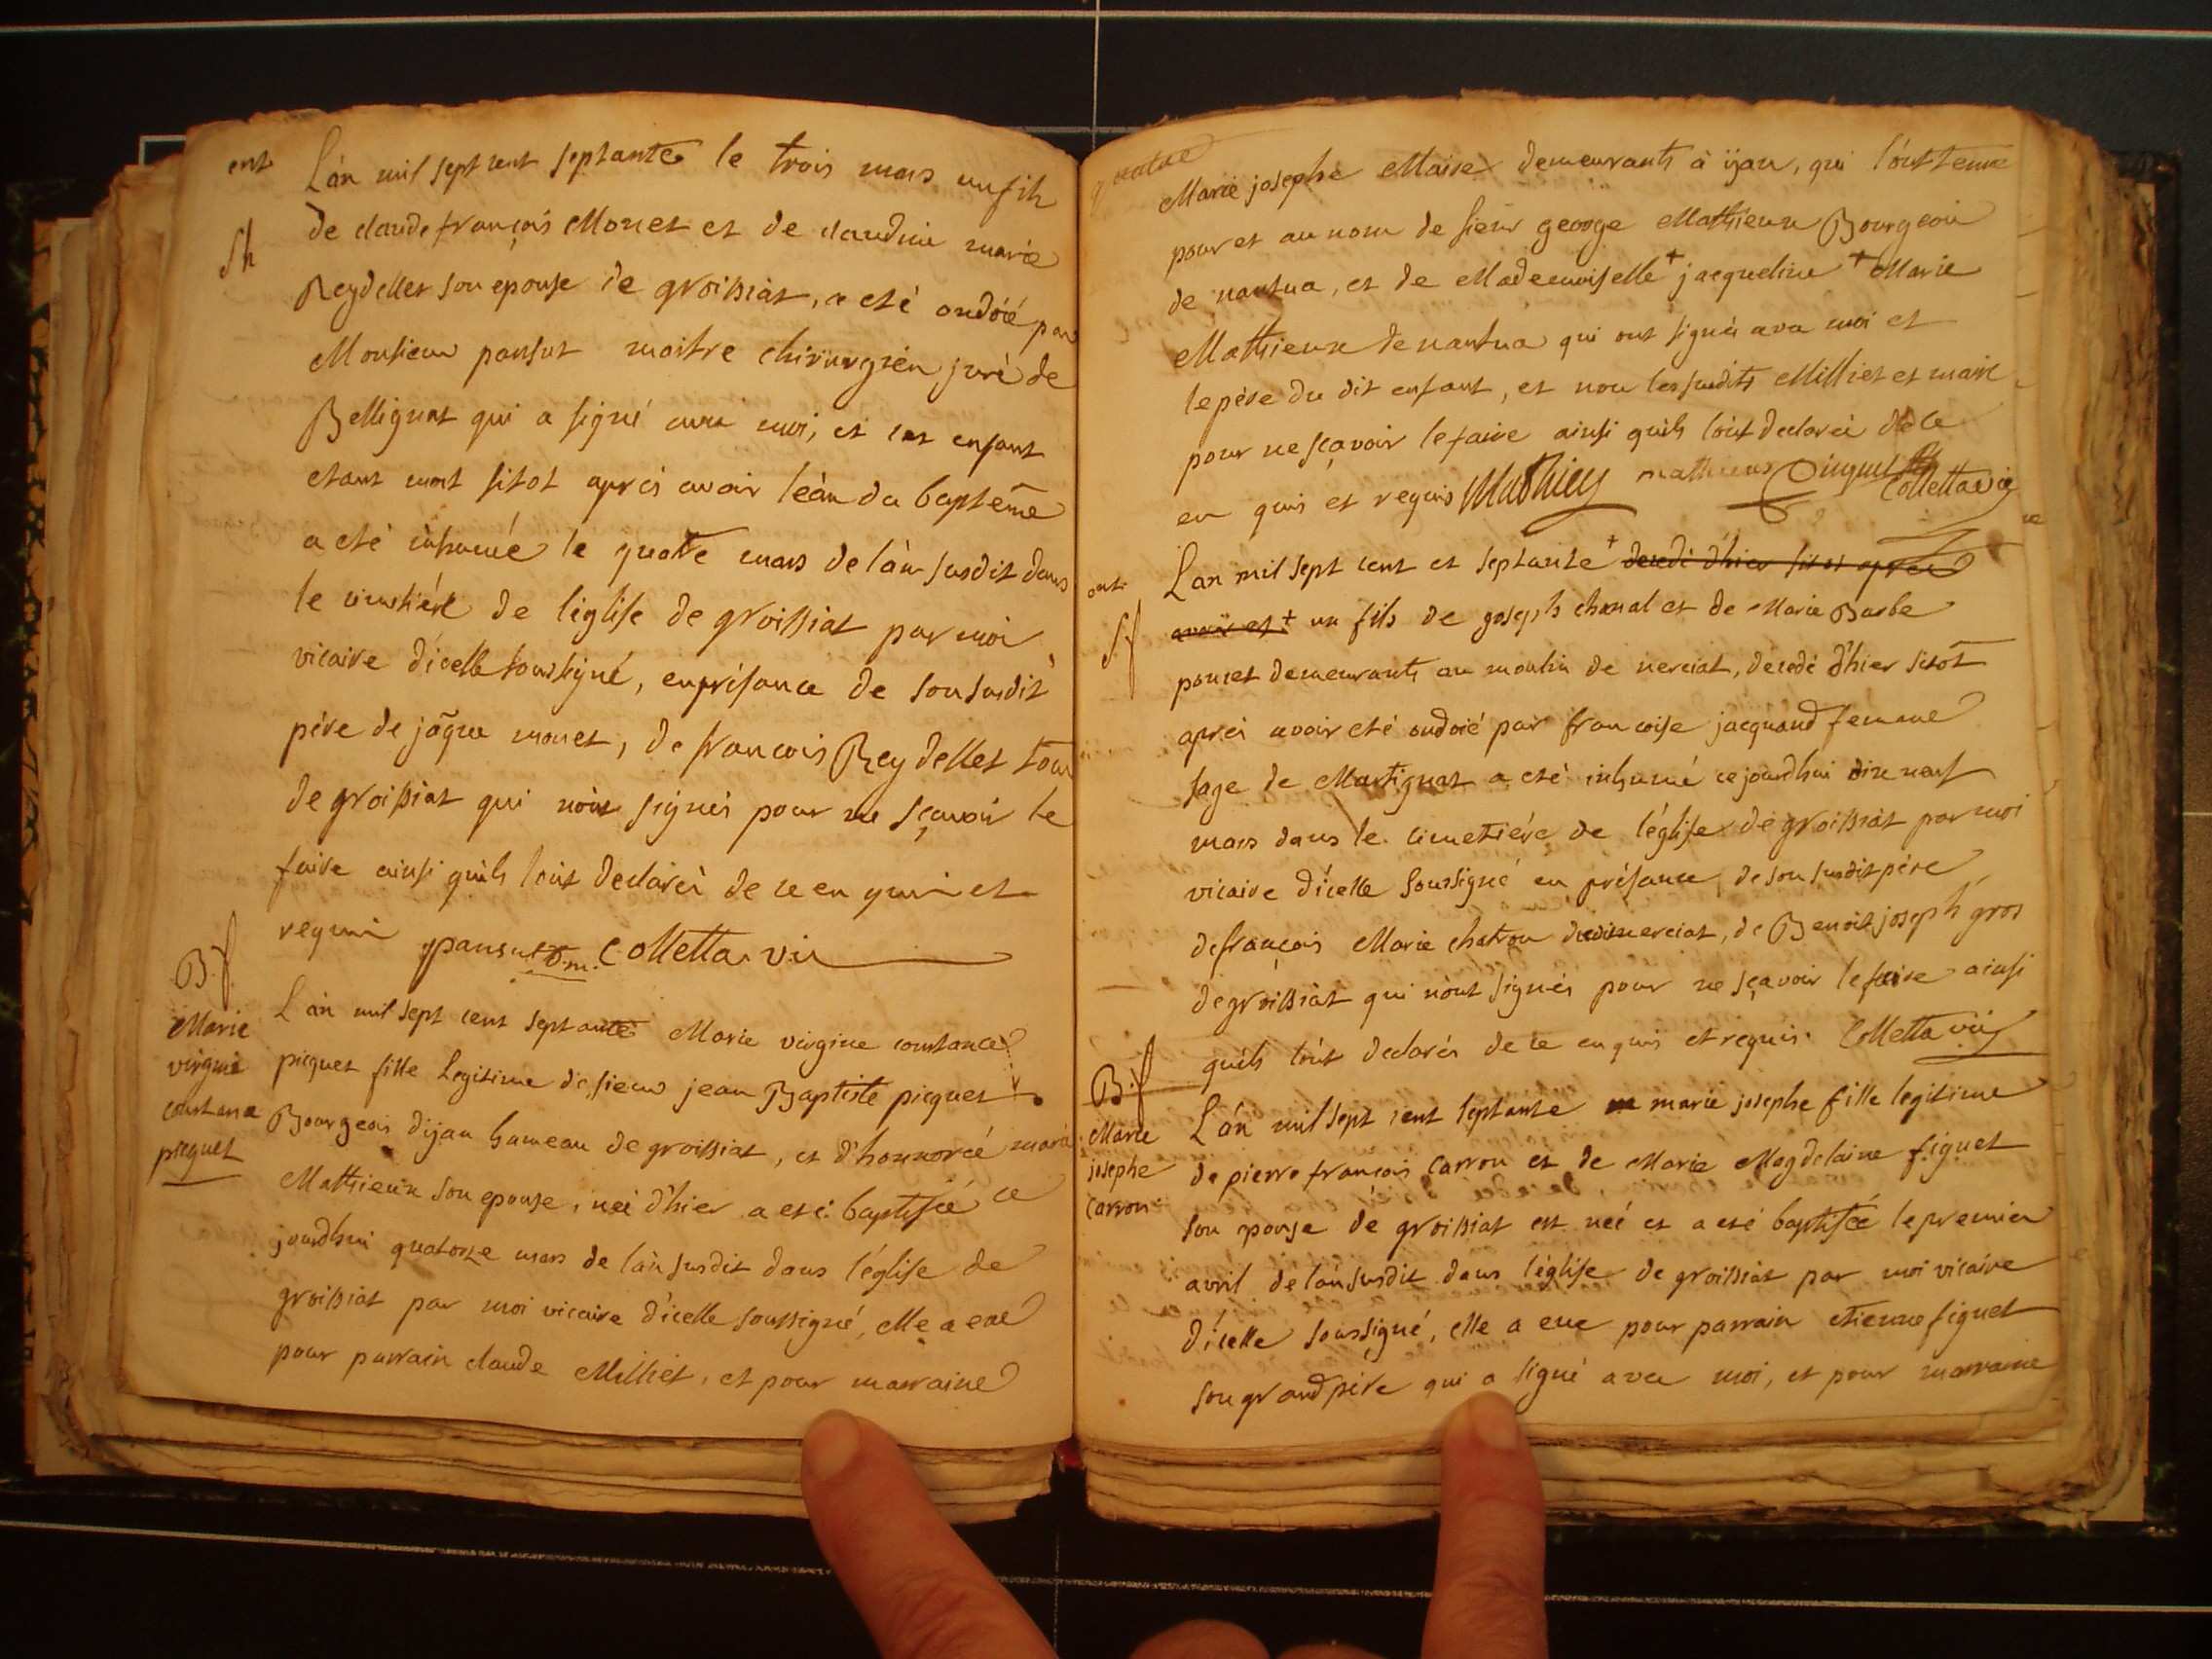 ent.
L'an mil sept cent septante le trois mars un fils
de claude françois Monet et de claudine marie
Sh
Reydellet son epouse de groissiat, a eté ondoié par
Monsieur pansut maitre chirurgien juré de
Bellignat qui a signé avec moi, et cet enfant
etant mort sitot aprés avoir l'eàu du baptême
a eté inhumé le quatre mars de l'àn susdit dans
le cimetiére de l'eglise de groissiat par moi
vicaire d'icelle soussigné, en présance de son susdit
pére de jaque monet, de francois Reydellet tous
de groissiat qui n'ont signés pour ne sçavoir le
faire ainsi quils l'ont declarés de ce en quis et
requis pansut D.m. Colletta vic
B.f.
Marie
virginie
constance
picquet
L'an mil sept cent septante Marie virginie constance
picquet fille Legitime de sieur jean Baptiste picquet
Bourgeois d'ijan hameau de groissiat, et d'honnorée marie
Mathieux son epouse, neé d'hier a eté baptisée ce
jourdhui quatorze mars de l'àn susdit dans l'église de
groissiat par moi vicaire d'icelle soussigné, elle a eue
pour parrain claude Milliet, et pour marraine
Marie josephe Maire demeurants à ijan, qui l'ont tenue
pour et au nom de sieur george Mathieux Bourgeois
de nantua, et de Mademoiselle + jacqueline + Marie
Mathieux de nantua qui ont signés avec moi et
le pére du dit enfant, et non les susdits Milliet et maire
pour ne sçavoir le faire ainsi quils l'ont declarés de ce
en quis et requis Mathieu mathieux picquet Colletta vic
ent.
S.f
L'an mil sept cent et septante + decedé d'hier sitot aprés
avoir et + un fils de joseph chanal et de Marie Barbe
poncet demeurants au moulin de nerciat, décedé d'hier sitôt
aprés avoir eté ondoié par francoise jacquand femme
sage de Martignat a eté inhumé ce jourdhui dix neuf
mars dans le cimetiére de l'église de groissiat par moi
vicaire d'icelle soussigné en présance de son susdit pére
de françois Marie chatron dudit nerciat, de Benoit joseph gros
de groissiat qui n'ont signés pour ne sçavoir le faire ainsi
quils l'ont declarés de ce en quis et requis. Colletta vic
B.f
Marie
josephe
Carron
L'àn mil sept cent septante marie josephe fille legitime
de pierre françois Carron et de Marie Magdelaine figuet
son epouse de groissiat est neé et a eté baptisée le premier
avril de l'àn susdit dans l'église de groissiat par moi vicaire
d'icelle soussigné, elle a eue pour parrain etienne figuet
son grand pére qui a signé avec moi, et pour marraine